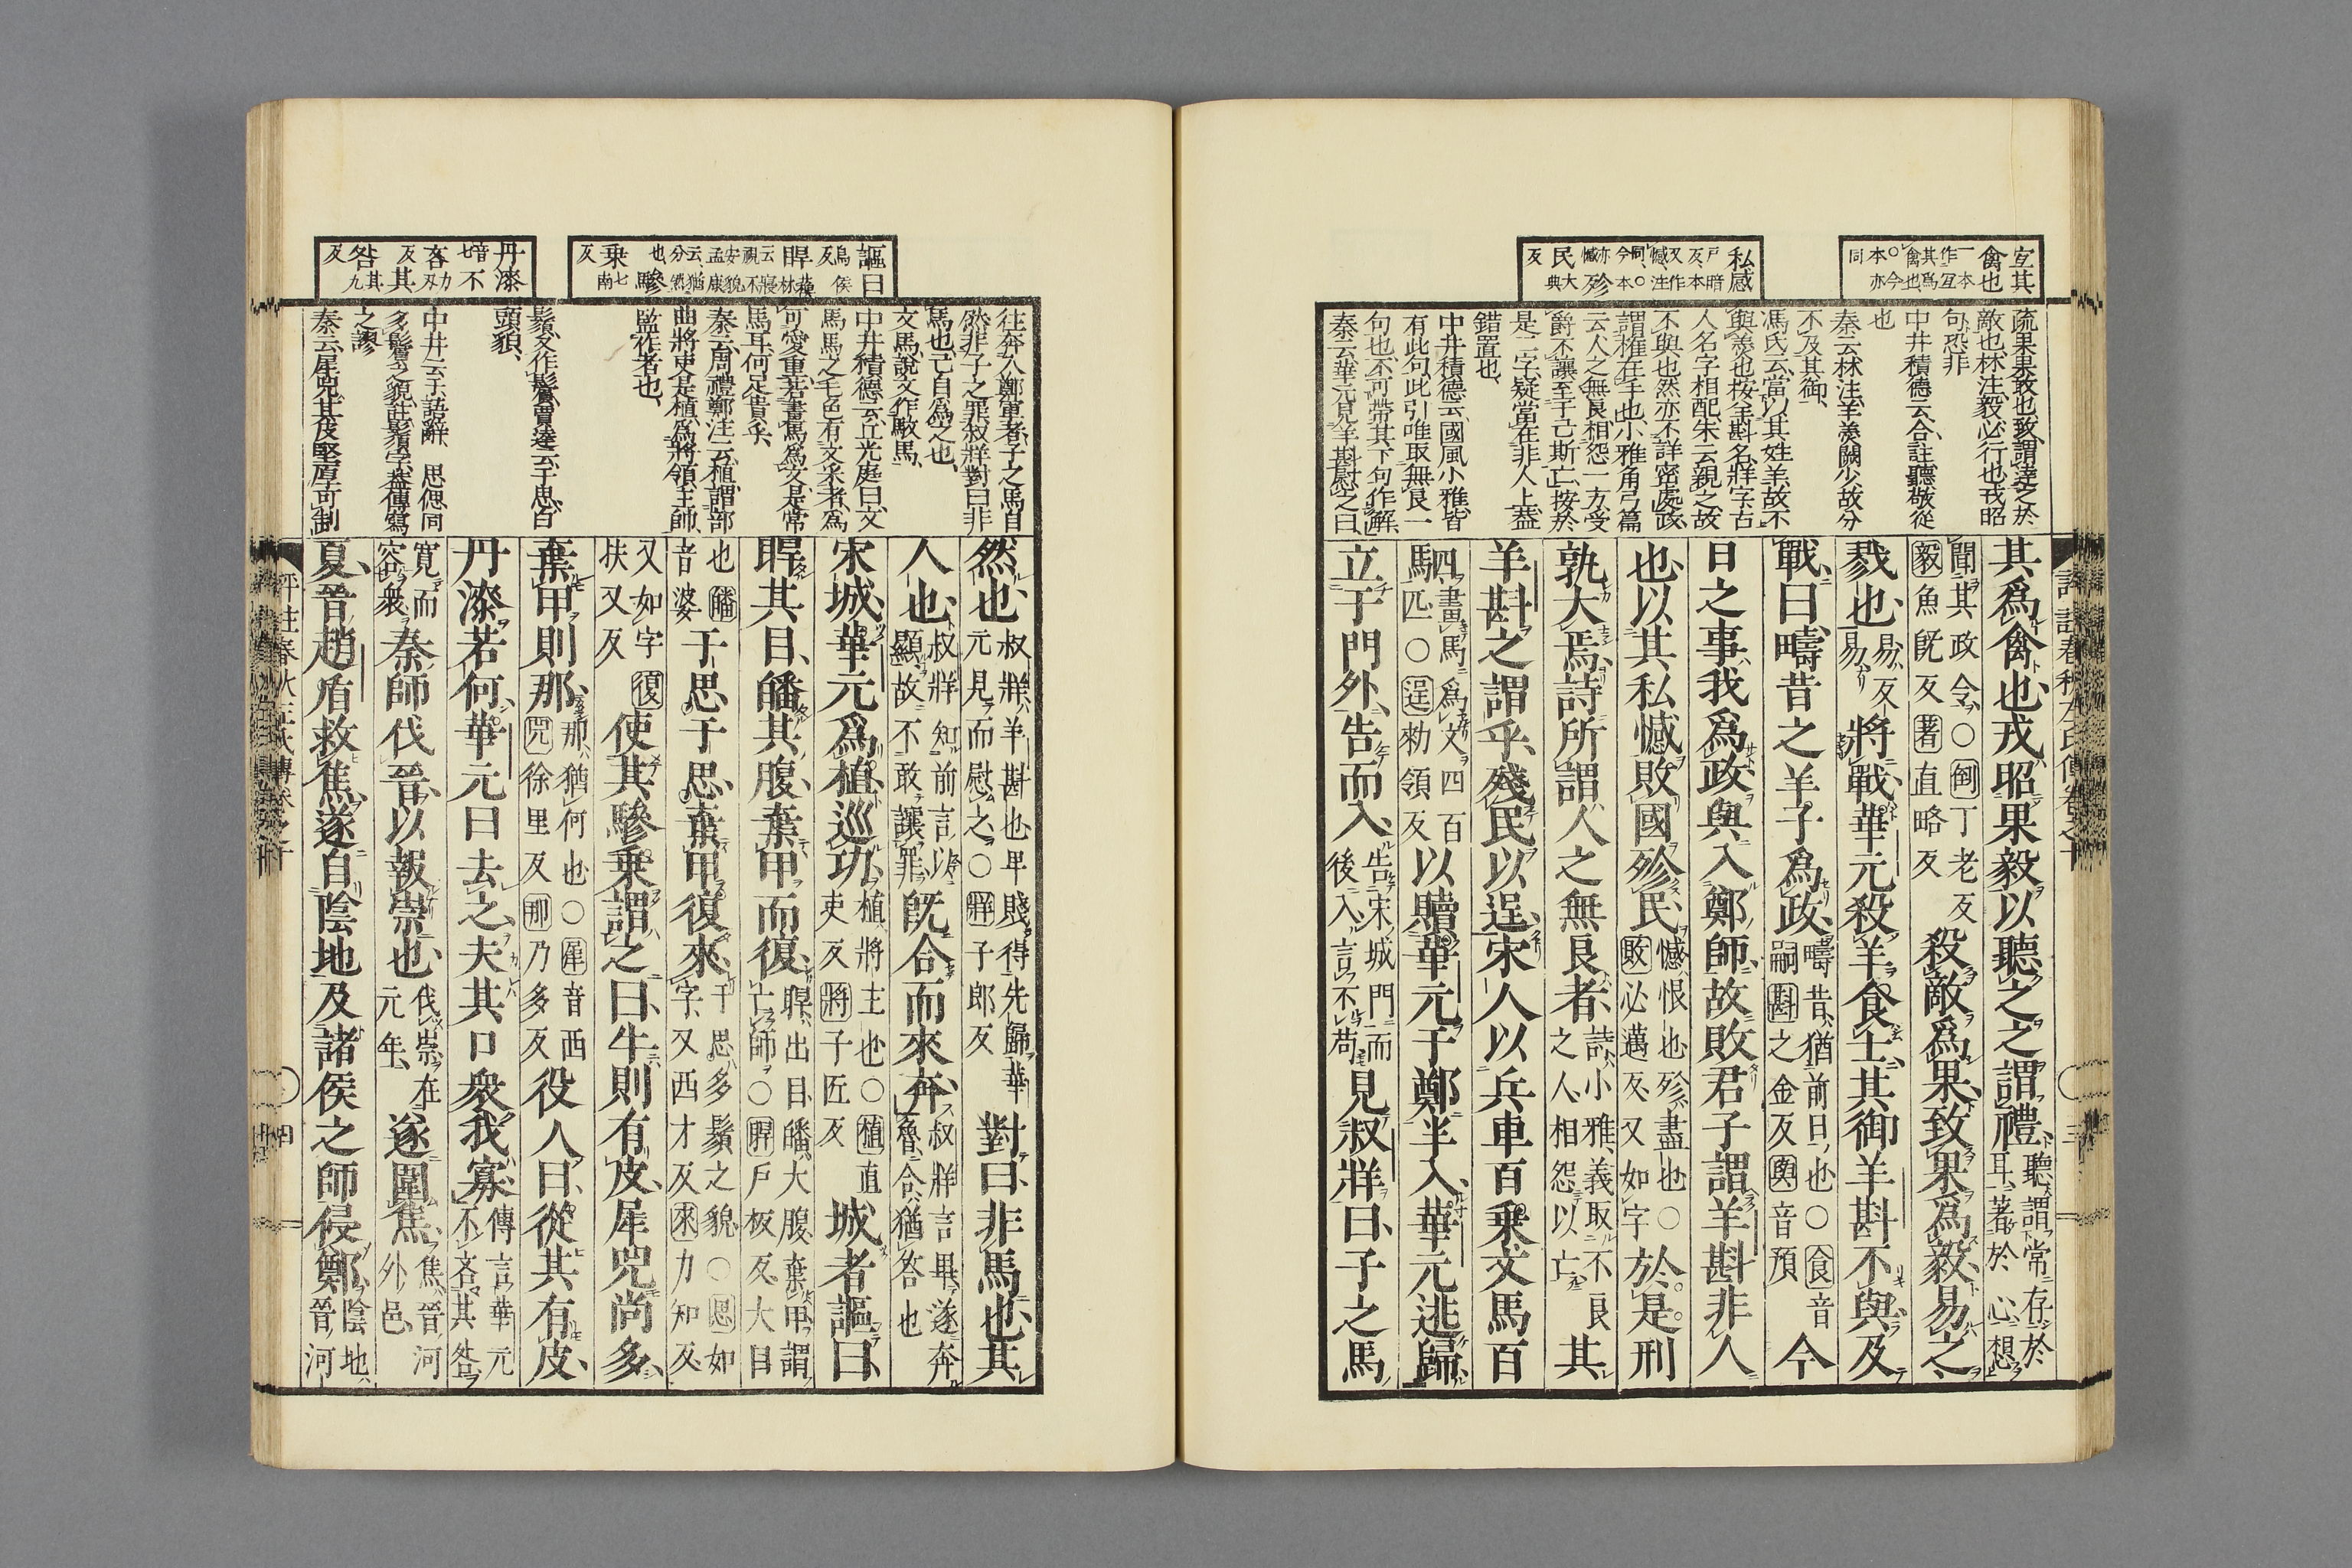 宐其
禽也
一本
作宐
其爲
禽也
○今
本亦
同
私感
戶暗
反本
又作
憾注
同○
今本
亦
憾
殄
民
大典
反
疏果果敢也致謂達之於
敵也林注毅必行也戎昭
句恐非
中井積德云合註聽敬從
也
秦云林注羊羹闕少故分
不及其御
馮氏云當以其姓羊故不
與羹也按羊斟名牂字古
人名字相配朱云親之故
不與也然亦不詳密處政
謂權在手也小雅角弓篇
云人之無良相怨一方受
爵不讓至于己斯亡按於
是二字疑當在非人上葢
錯置也
中井積德云國風小雅皆
有此句此引唯取無良一
句也不可帶其下句作解
秦云華元見羊斟慰之曰
其爲禽也戎昭果毅以聽之之謂禮聽謂常存於
耳著於心想
聞其政令○倒丁老反
毅魚旣反著直略反
殺敵爲果致果爲毅易之
戮也易反
易
將戰華元殺羊食士其御羊斟不與及
戰曰疇昔之羊子爲政疇昔猶前日也○食音
嗣斟之金反與音預
今
日之事我爲政與入鄭師故敗君子謂羊斟非人
也以其私憾敗國殄民憾恨也殄盡也○
敗必邁反又如字
於是刑
孰大焉詩所謂人之無良者詩小雅義取不良
之人相怨以亡
其
羊斟之謂乎殘民以逞宋人以兵車百乘文馬百
駟畫馬爲文四百
匹○逞勑領反
以贖華元于鄭半入華元逃歸
立于門外告而入告宋城門而
後入言不苟
見叔牂曰子之馬
謳曰
烏侯
反
睅
乘
七南
反
驂
丹漆
音七
不
吝
力刃
反
其
咎
其九
反
往奔入鄭軍者子之馬自
然非子之罪叔牂對曰非
馬也己自爲之也
文馬說文作駁馬
中井積德云立光庭曰文
馬馬之毛色有文采者爲
可愛重若畫馬爲文是常
馬耳何足貴乎
秦云周禮鄭注云植謂部
曲將吏是植爲將領主帥
監作者也
鬚多作鬢賈逵云于思白
頭貌
中井云于語辭思偲同
多鬢之貌註鬚字葢傳寫
之謬
秦云犀兕其皮堅厚可制
然也叔牂羊斟也卑賤得先歸華
元見而慰之○牂子郎反
對曰非馬也其
人也叔牂知前言以
顯故不敢讓罪
旣合而來奔叔牂言畢遂奔
魯合猶答也
宋城華元爲植巡功植將主也○植直
吏反將子匠反
城者謳曰
睅其目皤其腹棄甲而復睅出目皤大腹棄甲謂
亡師○睅戶板反大目
也皤
音婆
于思于思棄甲復來于思多鬚之貌○思如
字又西才反來力知反
又如字復
扶又反
使其驂乘謂之曰牛則有皮犀兕尚多
棄甲則那那猶何也○犀音西
兕徐里反那乃多反
役人曰從其有皮
丹漆若何華元曰去之夫其口衆我寡傳言華元
不吝其咎
寬而
容衆
秦師伐晉以報崇也伐崇在
元年
遂圍焦焦晉河
外邑
夏晉趙盾救焦遂自陰地及諸侯之師侵鄭陰地
晉河